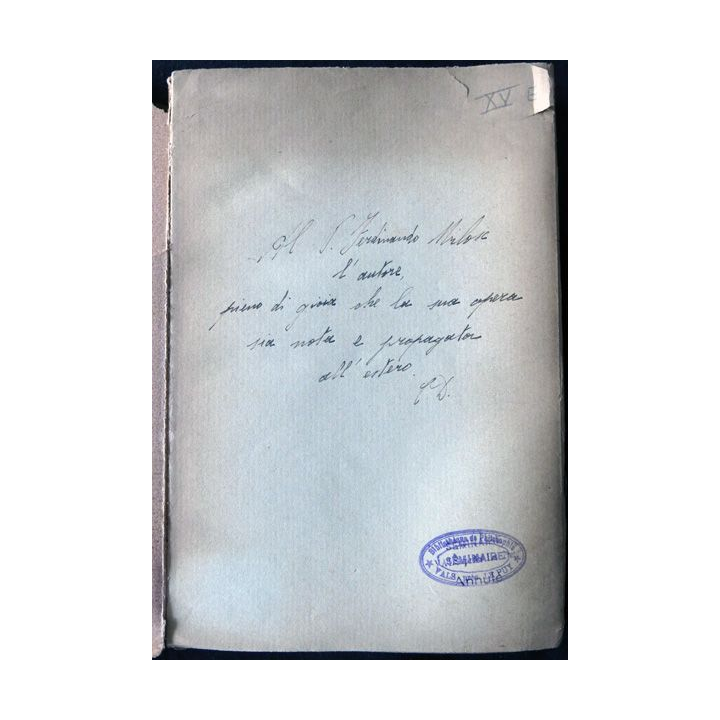 XV E
Al P. Ferdinando
l'autore,
pieno di gioia che la sua opera
sia nota e propagata
all'estero.
C D.
Bibliothèque de Philosophie
SEMINAIRE
VALS LE PUY
Annulé